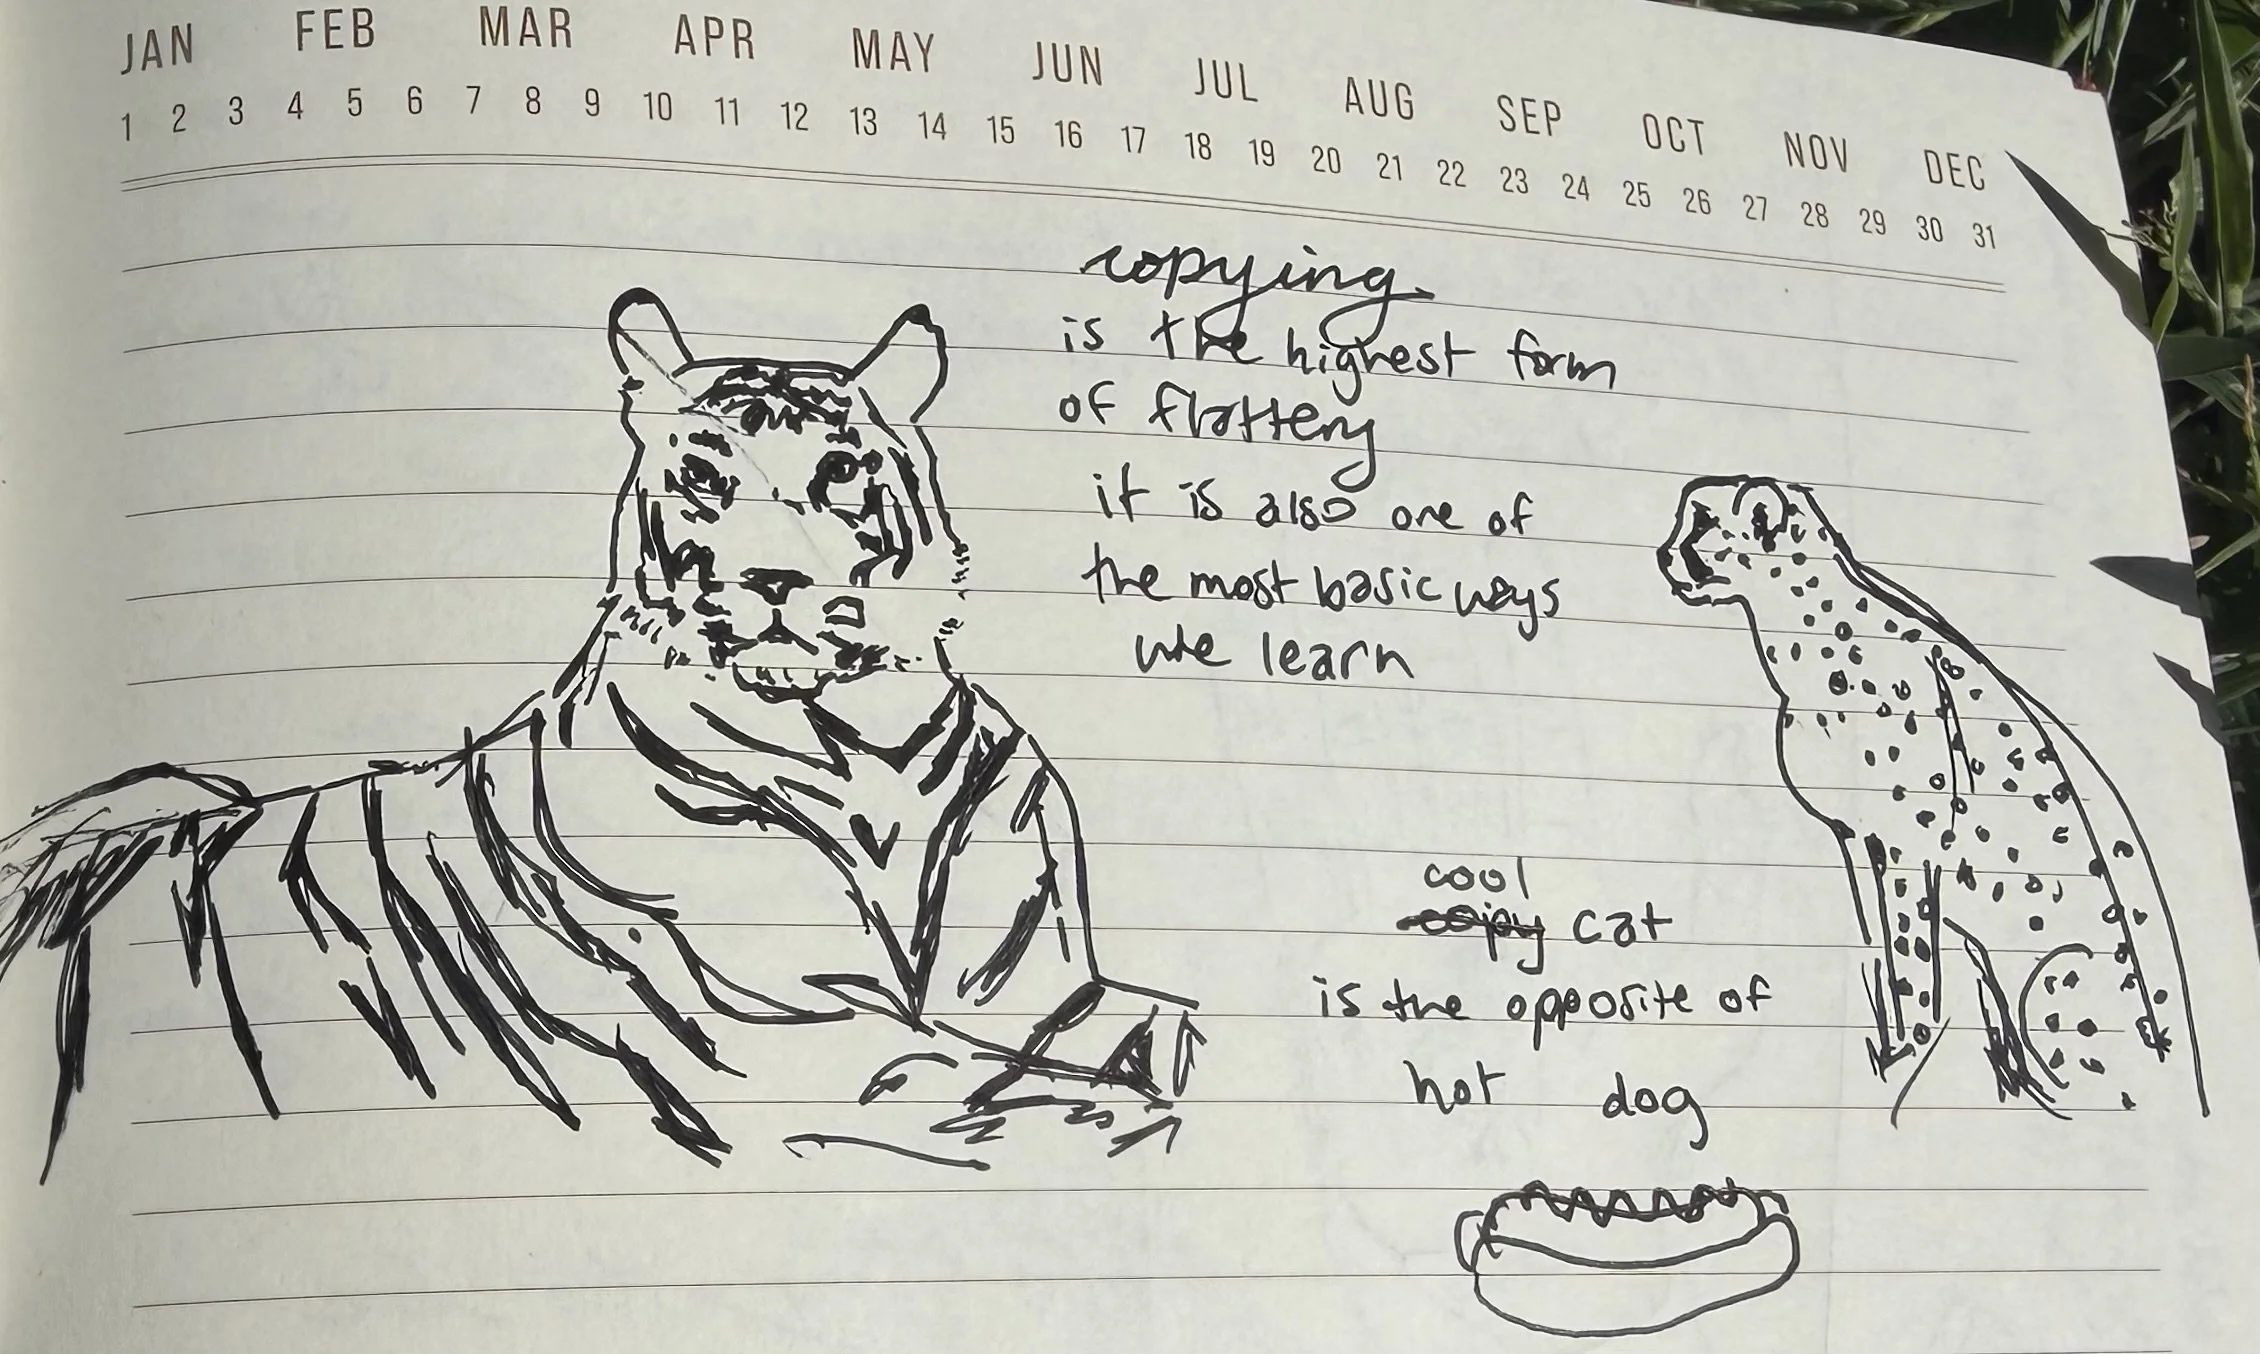 JAN FEB MAR APR MAY JUN JUL AUG SEP OCT NOV DEC
1 2 3 4 5 6 7 8 9 10 11 12 13 14 15 16 17 18 19 20 21 22 23 24 25 26 27 28 29 30 31
copying
is the highest form
of flattery
it is also one of
the most basic ways
we learn
cool
cat
is the opposite of
hot dog